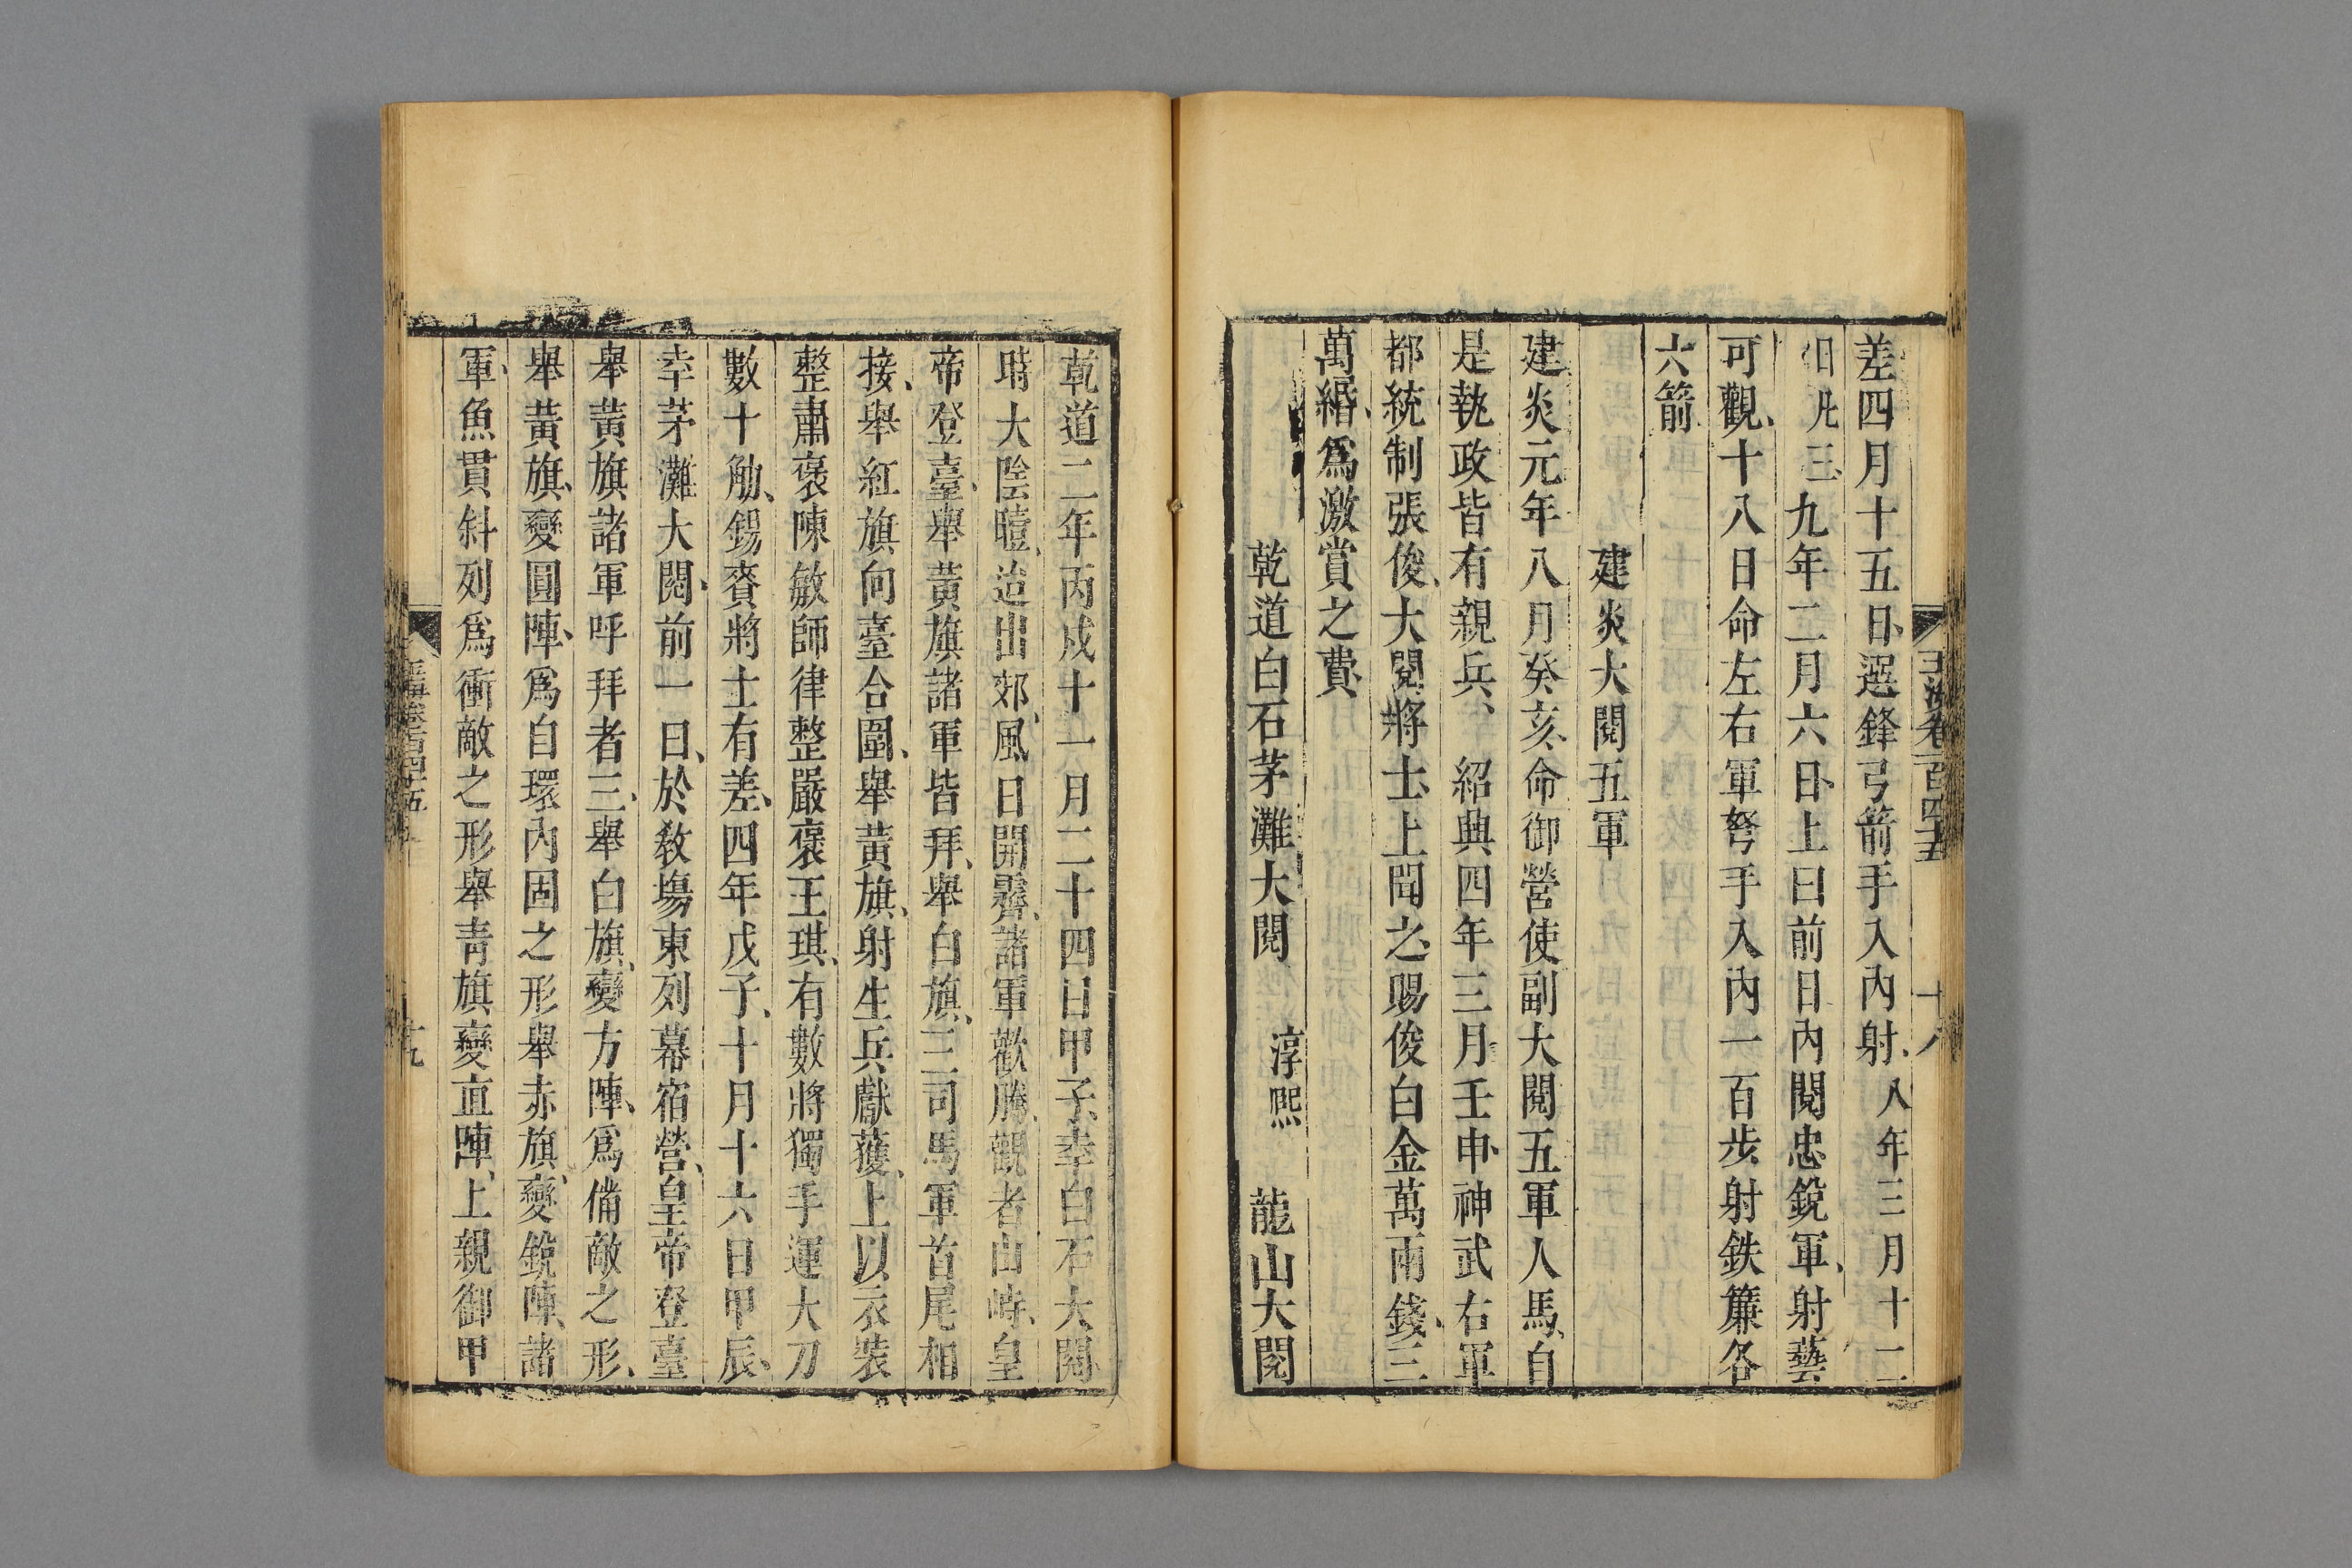 玉海卷一百四十五
十八
差四月十五日選鋒弓箭手入內射八年三月十二
日凡三九年二月六日上曰前日內閱忠銳軍射藝
可觀十八日命左右軍弩手入內一百步射鉄簾各
六箭
建炎大閱五軍
建炎元年八月癸亥命御營使副大閱五軍人馬自
是執政皆有親兵 紹典四年三月壬申神武右軍
都統制張俊大閱將士上聞之賜俊白金萬兩錢三
萬緡爲激賞之費
乾道白石茅灘大閱 淳熙 龍山大閱
乾道二年丙戌十一月二十四日甲子幸白石大閱
時大陰曀迨出郊風日開霽諸軍歡騰觀者山峙皇
帝登臺舉黃旗諸軍皆拜舉白旗三司馬軍首尾相
接舉紅旗向臺合圍舉黃旗射生兵獻獲上以衣裝
整肅褒陳敏師律整嚴褒王琪有數將獨手運大刀
數十觔錫賚將士有差四年戊子十月十六日甲辰
幸茅灘大閱前一日於敎場東列幕宿營皇帝登臺
舉黃旗諸軍呼拜者三舉白旗變方陣爲備敵之形
舉黃旗變圓陣爲自環內固之形舉赤旗變銳陣諸
軍魚貫斜列爲衝敵之形舉青旗變直陣上親御甲
玉海卷一百四十五
十九